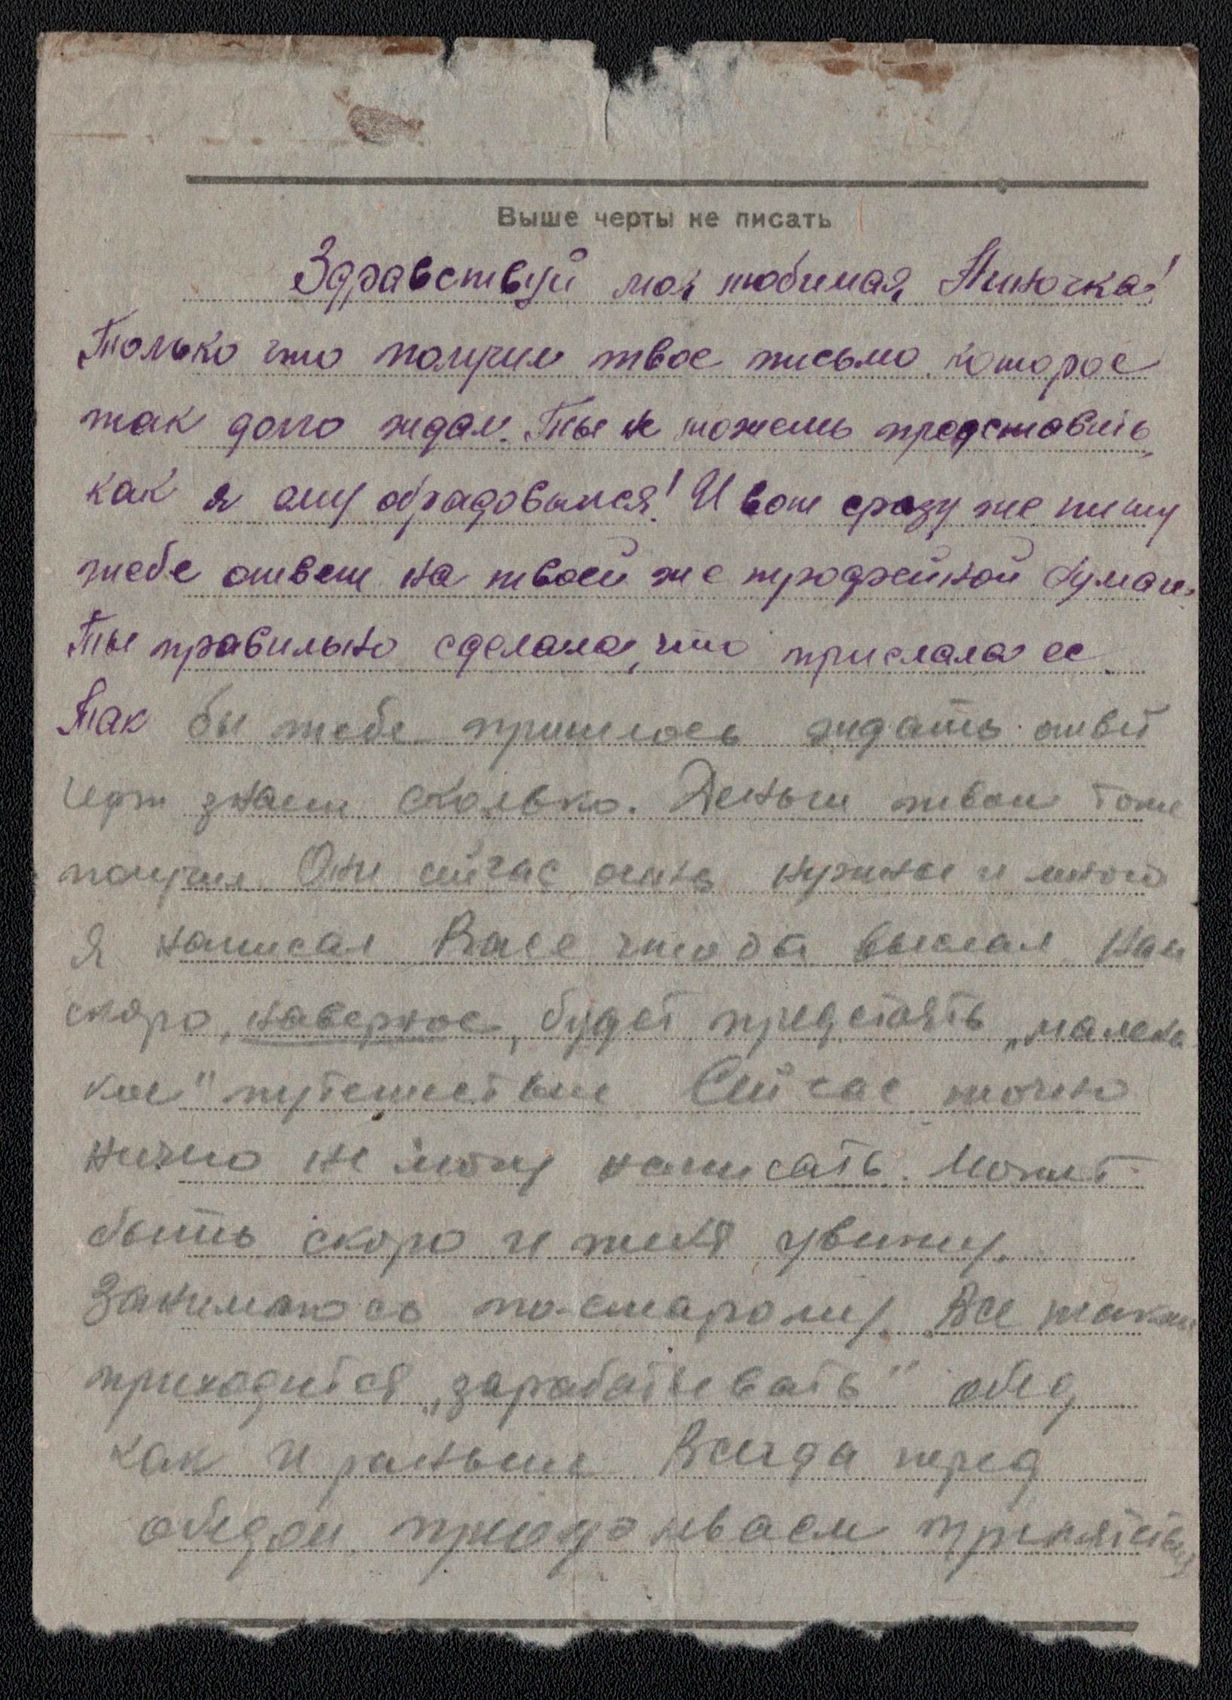 Выше черты не писать
Здравствуй моя любимая Ниночка!
Только что получил твое письмо которое
так долго ждал. Ты не можешь представить,
как я ему обрадовался! И вот сразу же пишу
тебе ответ на твоей же трофейной бумаге.
Ты правильно сделала, что прислала ее.
Так бы тебе пришлось ждать ответ
черт знает сколько. Деньги твои тоже
получил Они сейчас очень нужны и много
Я написал Васе чтобы выслал Нам
скоро, наверное, будет предстоять „малень
кое" путешествие Сейчас точно
ничего не могу написать. Может
быть скоро и тебя увижу.
Занимаюсь по-старому. Все также
приходится „зарабатывать" обед
как и раньше Всегда перед
обедом преодолеваем препятствия